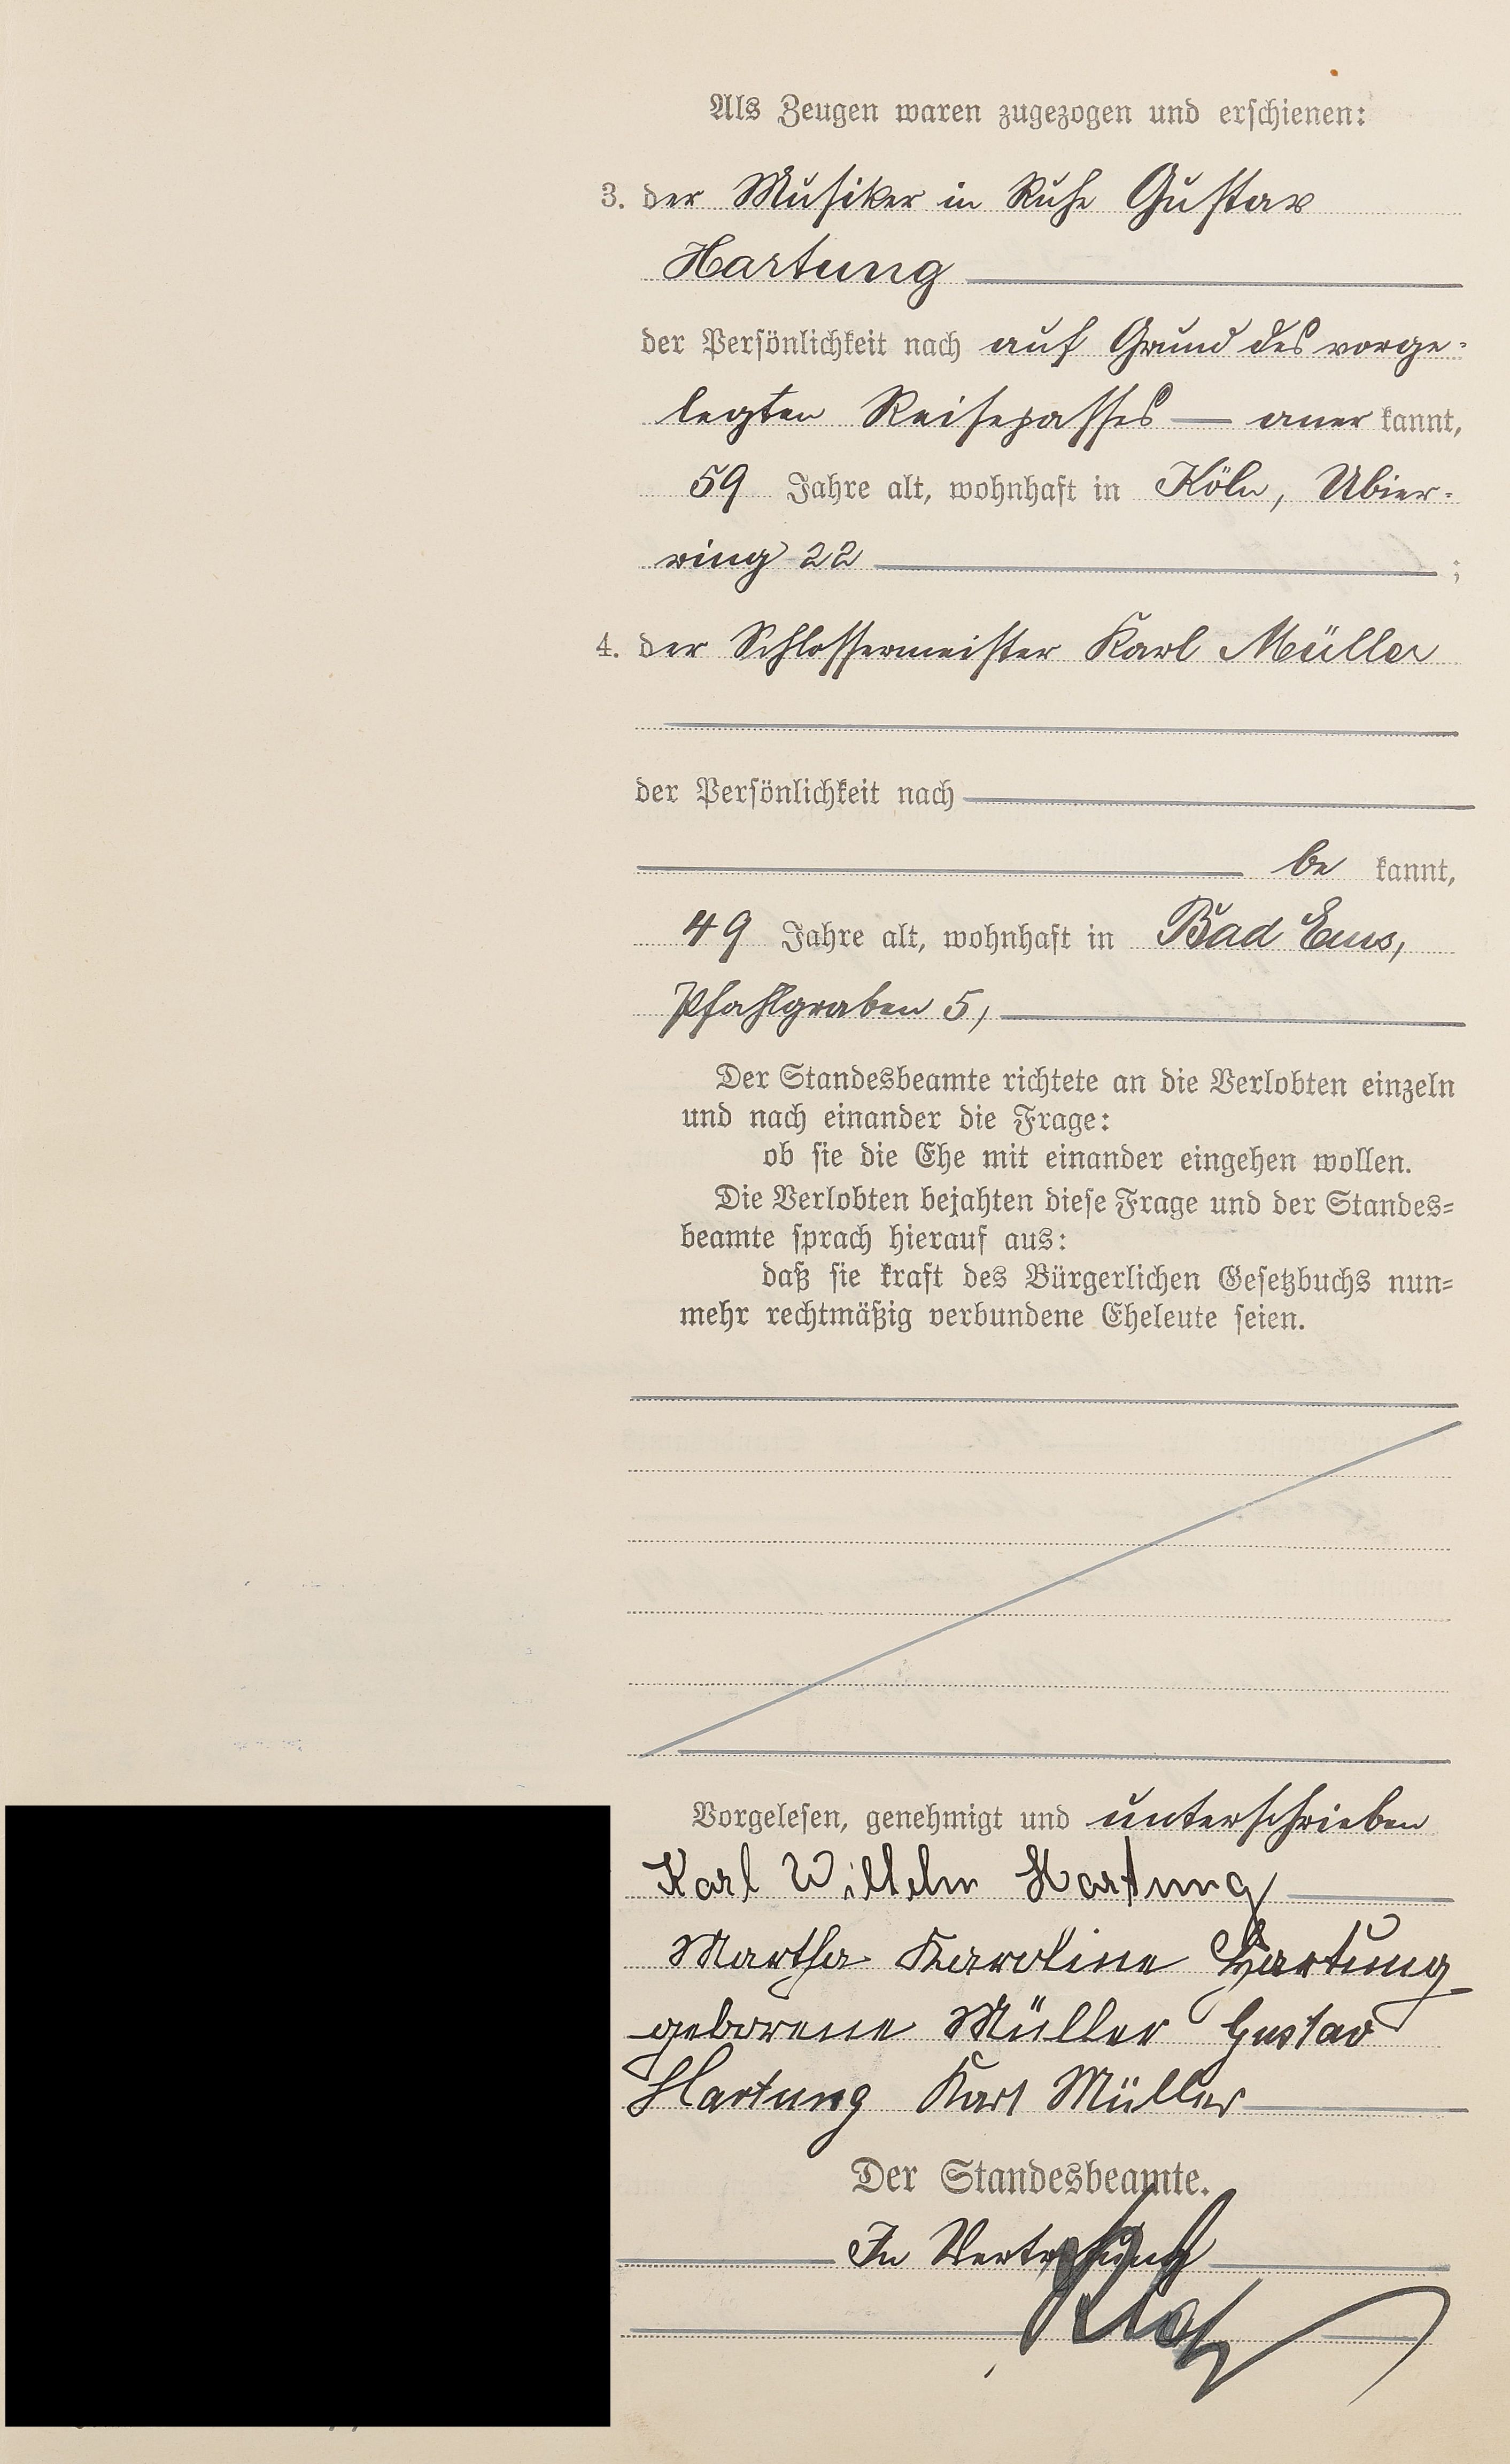 Als Zeugen waren zugezogen und erschienen:
3. der Musiker in Ruhe Gustav
Hartung
der Persönlichkeit nach auf Grund des vorge-
legten Reisepasses — anerkannt,
59 Jahre alt, wohnhaft in Köln, Ubier-
ring 22 ;
4. der Schlossermeister Karl Müller
der Persönlichkeit nach
be kannt,
49 Jahre alt, wohnhaft in Bad Ems,
Pfahlgraben 5,
Der Standesbeamte richtete an die Verlobten einzeln
und nach einander die Frage:
ob sie die Ehe mit einander eingehen wollen.
Die Verlobten bejahten diese Frage und der Standes-
beamte sprach hierauf aus:
daß sie kraft des Bürgerlichen Gesetzbuchs nun-
mehr rechtmäßig verbundene Eheleute seien.
Vorgelesen, genehmigt und unterschrieben
Karl Wilhelm Hartung
Martha Karoline Hartung
geborene Müller Gustav
Hartung Karl Müller
Der Standesbeamte.
In Vertretung